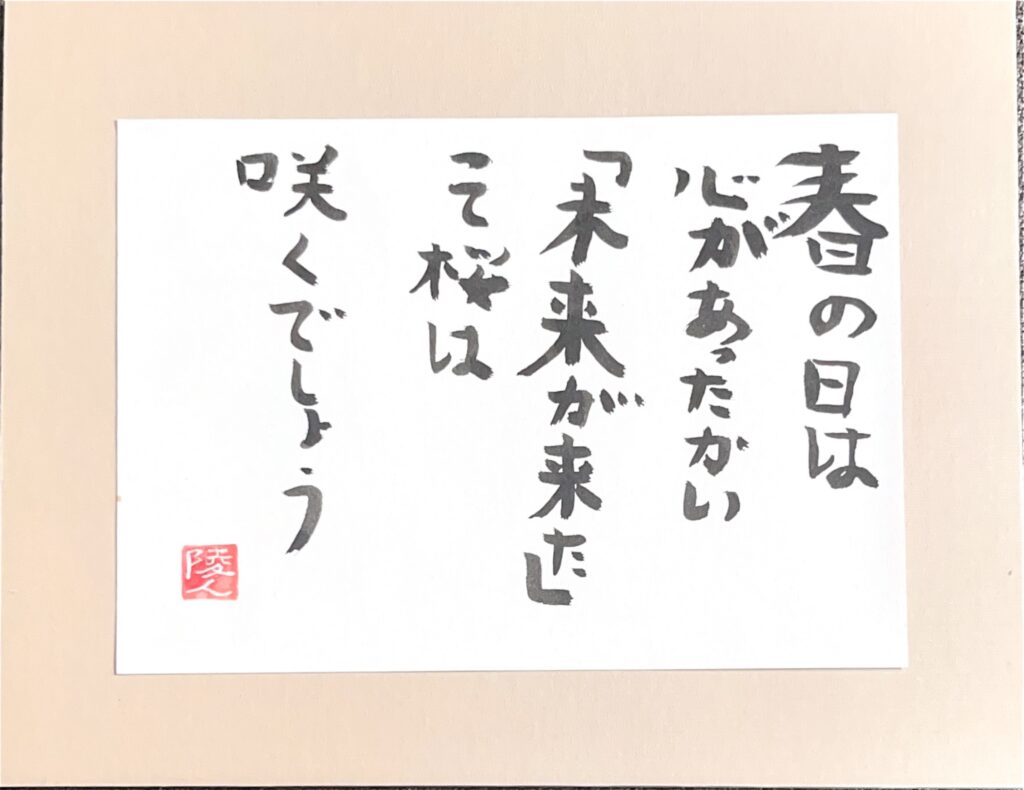 春の日は
心があったかい
「未来が来た」
こて桜は
咲くでしょう
陵人